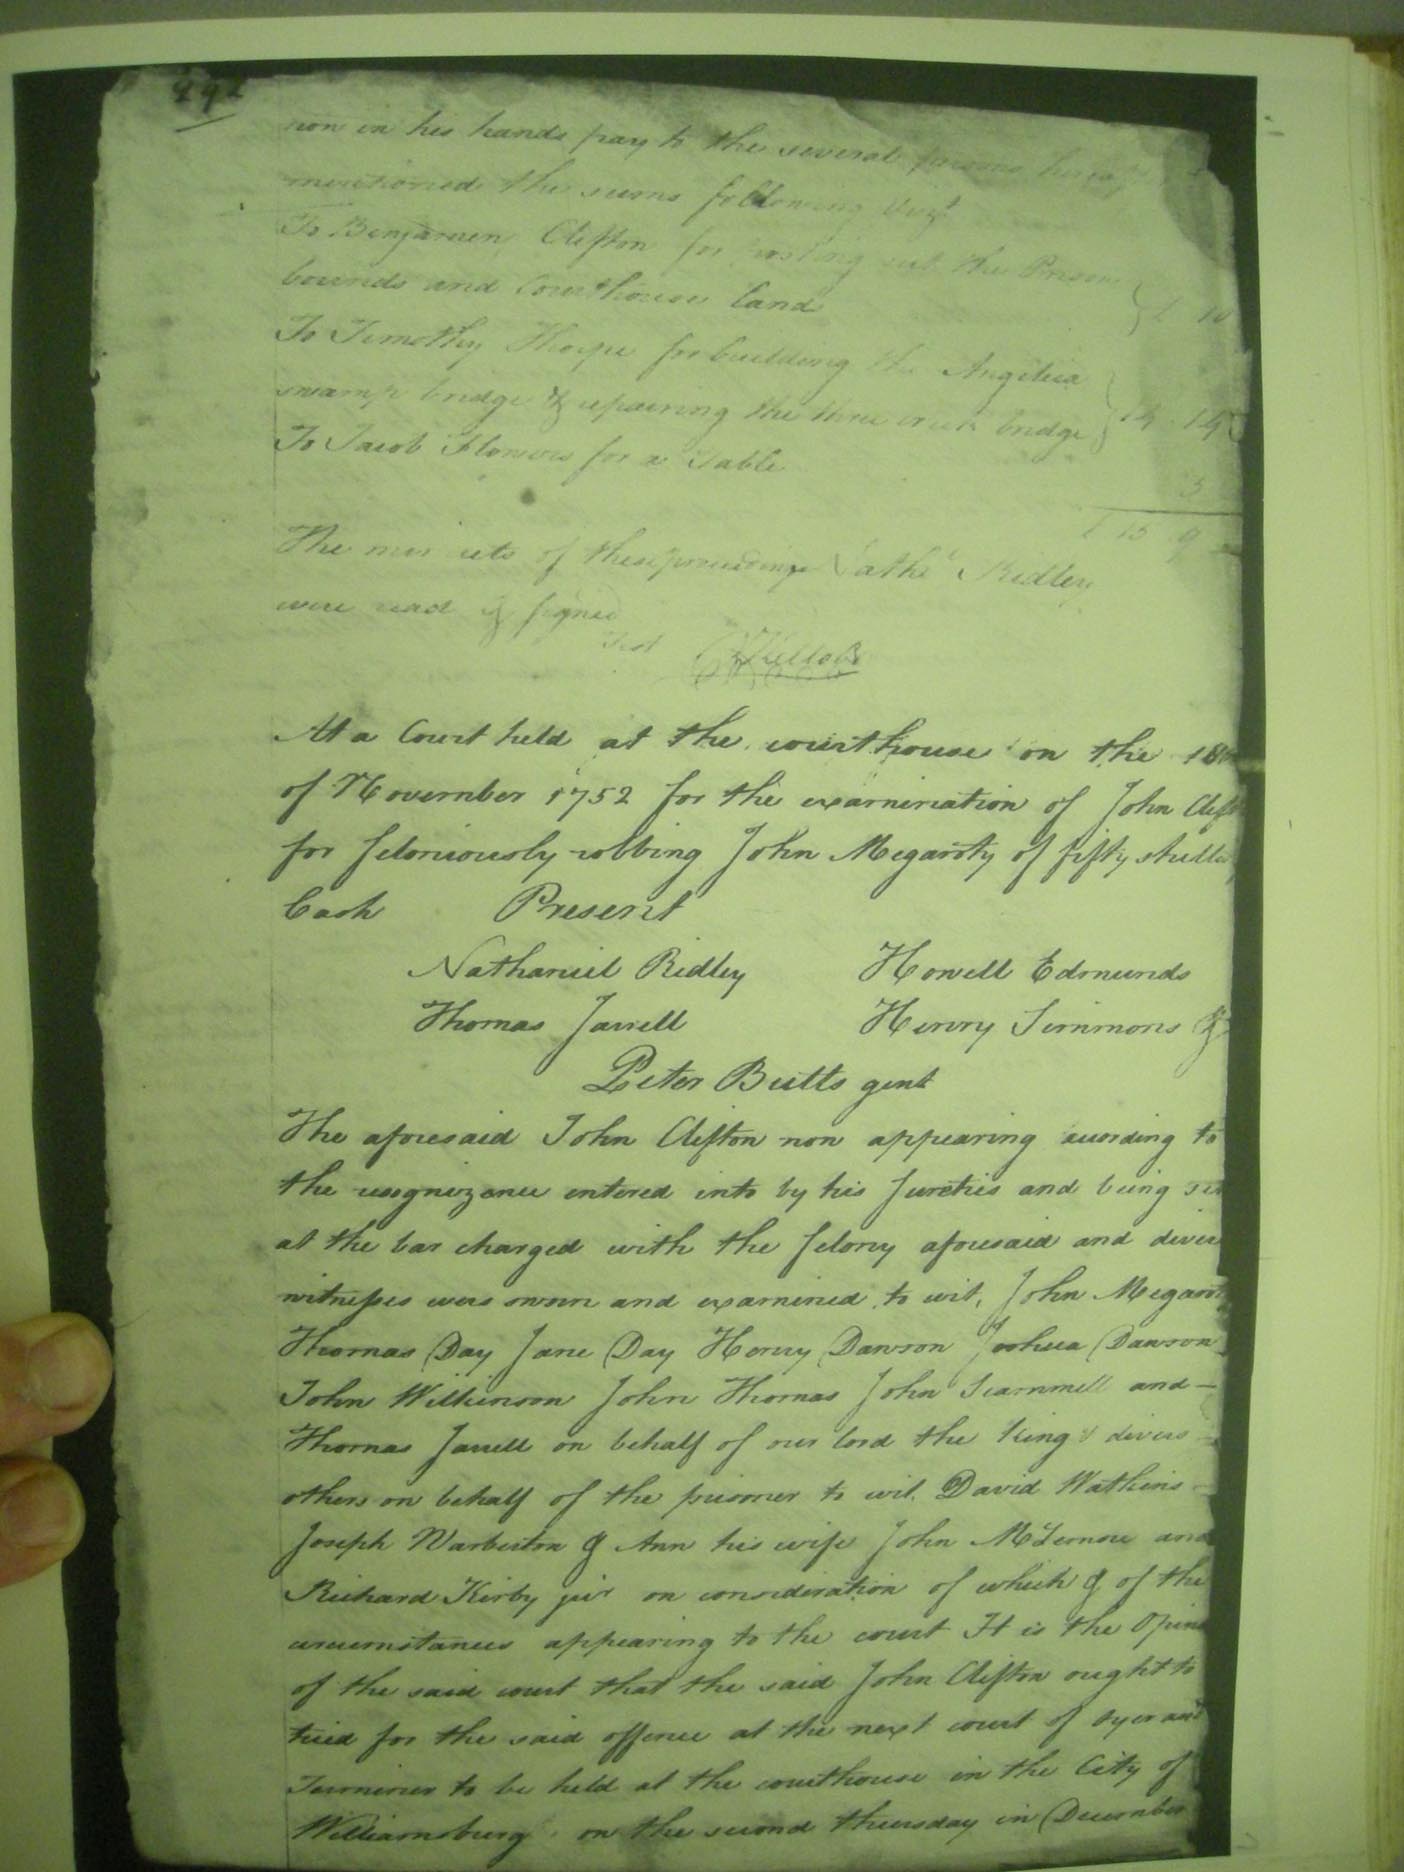 now in his hands pay to the several persons
mentioned the sums following Vizt
To Benjamen Clifton for out the Prison
bounds and Courthouse land £ 10
To Timothy Thorpe for building the Angelica
swamp bridge & repairing the three creek bridge 14 . 14
To Jacob Flowers for a Table
5
£ 15 9
The minuets of these proceedings Nathl Ridley
were read & signed
Test
At a Court held at the courthouse on the 18
of November 1752 for the examination of John Clift
for feloniously robbing John Megarity of fifty shillin
Cash Present
Nathaniel Ridley Howell Edmunds
Thomas Jarrell Henry Simmons &
Peter Butts gent
The aforesaid John Clifton now appearing acording to
the recognizance entered into by his sureties and being set
at the bar charged with the felony aforesaid and divers
witnesses were sworn and examined to wit, John Megarit
Thomas Day Jane Day Henry Dawson Joshua Dawson
John Wilkinson John Thomas John Scammell and
Thomas Jarrell on behalf of our lord the King & divers
others on behalf of the prisoner to wit. David Watkins
Joseph Warberton & Ann his wife John McLemore and
Richard Kirby junr on consideration of which & of the
circumstances appearing to the court It is the Opini
of the said court that the said John Clifton ought to
tried for the said offence at the next court of Oyer and
Terminer to be held at the courthouse in the City of
Williamsburg on the second thursday in December